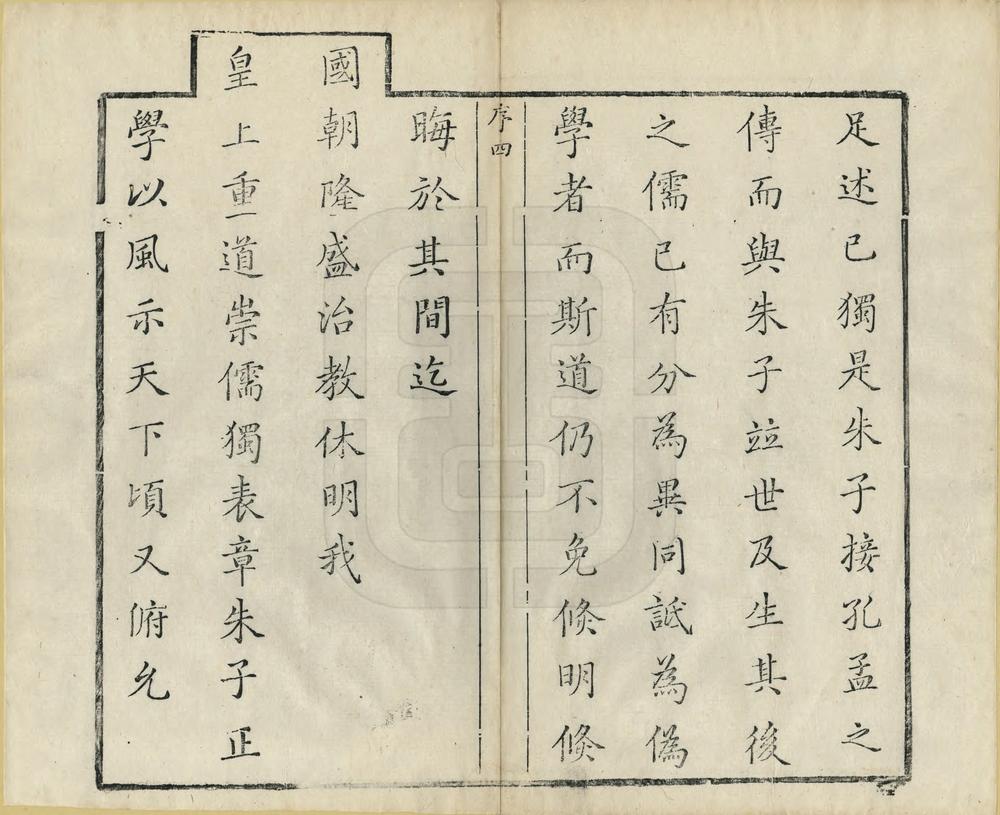 足述已獨是朱子接孔孟之
傳而與朱子竝世及生其後
之儒已有分為異同詆為偽
學者而斯道仍不免倏明倏
序四
晦於其間迄
國朝隆盛治教休明我
皇上重道崇儒獨表章朱子正
學以風示天下頃又俯允